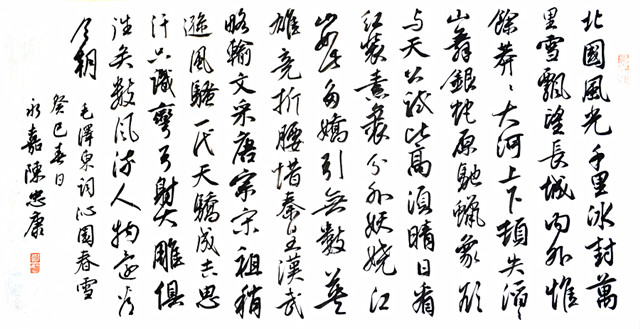 北國風光千里冰封萬
里雪飄望長城內外惟
餘莽〻大河上下頓失滔〻
山舞銀蛇原馳蠟象欲
与天公試比高須晴日看
紅裝素裹分外妖嬈江
山如此多嬌引無數英
雄竞折腰惜秦皇漢武
略輸文采唐宗宋祖稍
遜風騷一代天驕成吉思
汗只識彎弓射大雕俱
往矣數風流人物還看
今朝
毛澤東詞沁園春雪
癸巳春日
永嘉陳忠康